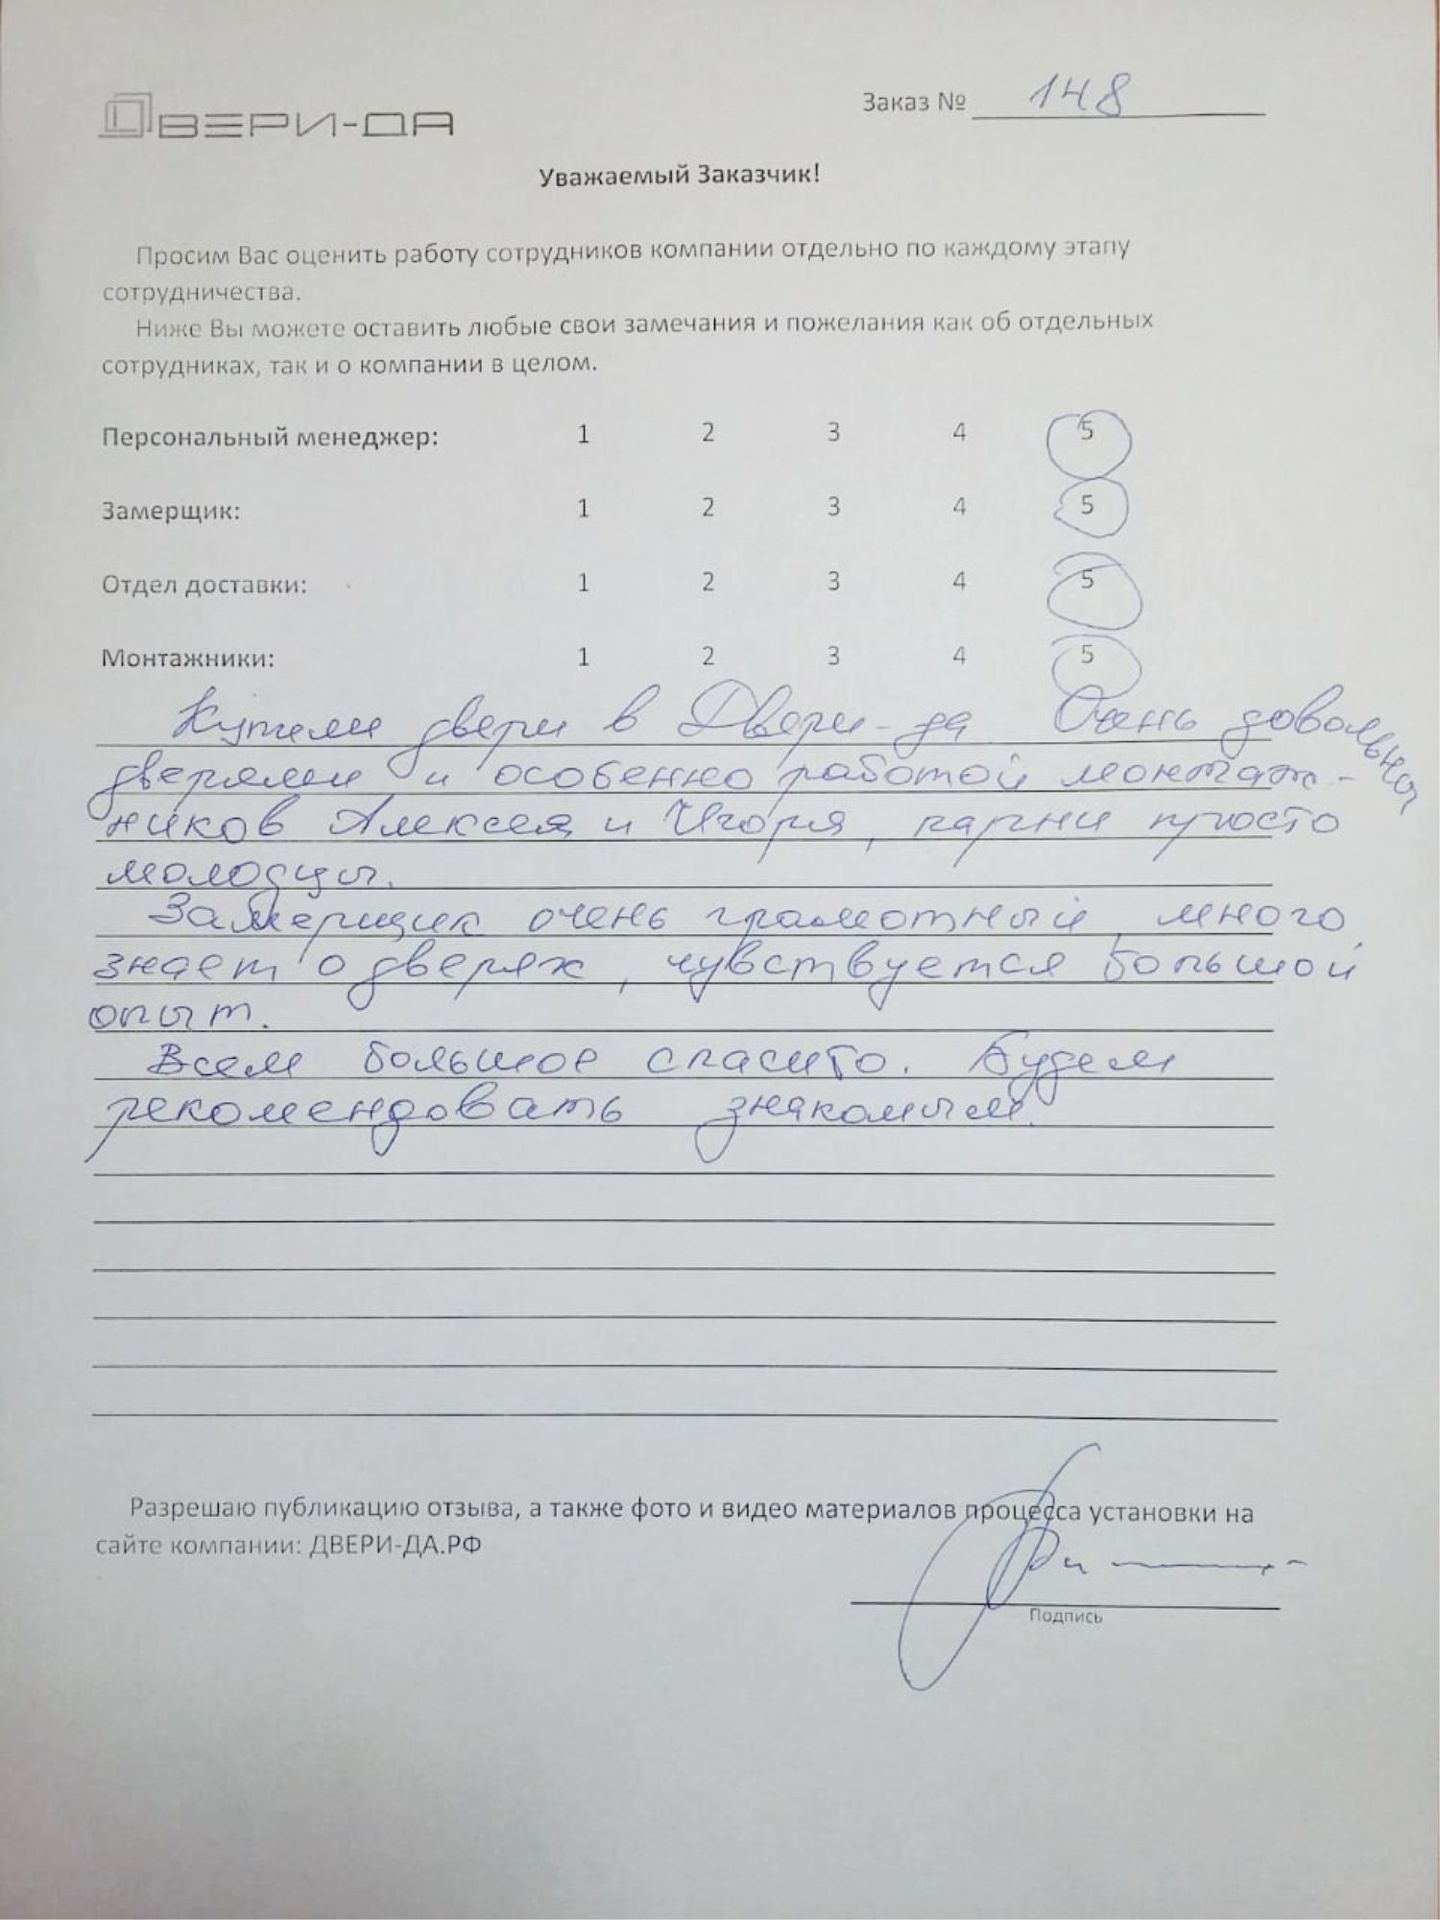 ДВЕРИ-ДА
Заказ № 148
Уважаемый Заказчик!
Просим Вас оценить работу сотрудников компании отдельно по каждому этапу
сотрудничества.
Ниже Вы можете оставить любые свои замечания и пожелания как об отдельных
сотрудниках, так и о компании в целом.
Персональный менеджер: 1 2 3 4 5
Замерщик: 1 2 3 4 5
Отдел доставки: 1 2 3 4 5
Монтажники: 1 2 3 4 5
Купили двери в Двери-да Очень довольны
дверями и особенно работой монтаж-
ников Алексея и Игоря, парни просто
молодцы.
Замерщик очень грамотный, много
знает о дверях, чувствуется большой
опыт.
Всем большое спасибо. Будем
рекомендовать знакомым.
Разрешаю публикацию отзыва, а также фото и видео материалов процесса установки на
сайте компании: ДВЕРИ-ДА.РФ
Подпись